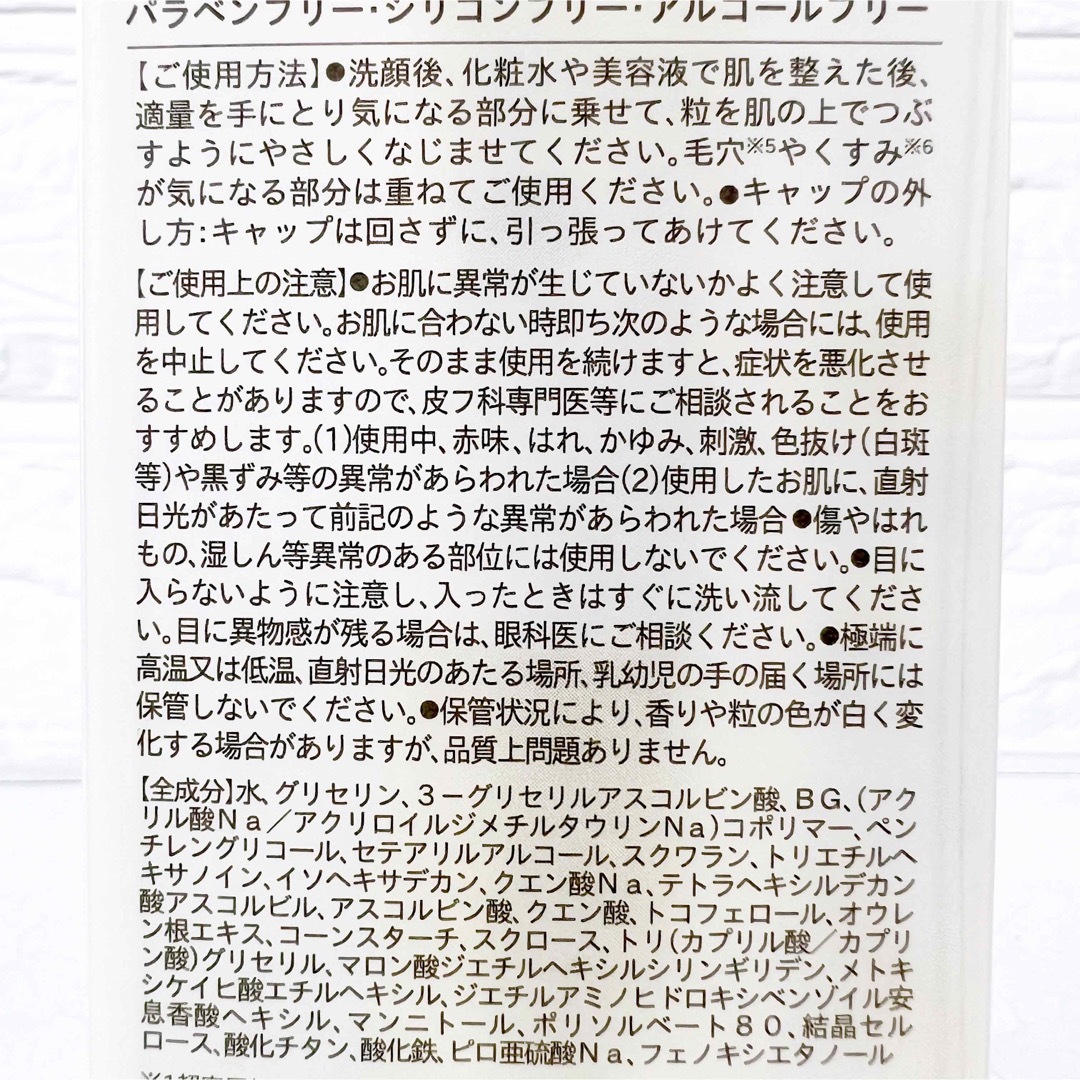 パラベンフリー・シリコンフリー・アルコールフリー
【ご使用方法】●洗顔後、化粧水や美容液で肌を整えた後、
適量を手にとり気になる部分に乗せて、粒を肌の上でつぶ
すようにやさしくなじませてください。毛穴※5やくすみ※6
が気になる部分は重ねてご使用ください。●キャップの外
し方:キャップは回さずに、引っ張ってあけてください。
【ご使用上の注意】●お肌に異常が生じていないかよく注意して使
用してください。お肌に合わない時即ち次のような場合には、使用
を中止してください。そのまま使用を続けますと、症状を悪化させ
ることがありますので、皮フ科専門医等にご相談されることをお
すすめします。(1)使用中、赤味、はれ、かゆみ、刺激、色抜け(白斑
等)や黒ずみ等の異常があらわれた場合(2)使用したお肌に、直射
日光があたって前記のような異常があらわれた場合●傷やはれ
もの、湿しん等異常のある部位には使用しないでください。●目に
入らないように注意し、入ったときはすぐに洗い流してくださ
い。目に異物感が残る場合は、眼科医にご相談ください。●極端に
高温又は低温、直射日光のあたる場所、乳幼児の手の届く場所には
保管しないでください。●保管状況により、香りや粒の色が白く変
化する場合がありますが、品質上問題ありません。
【全成分】水、グリセリン、3－グリセリルアスコルビン酸、BG、(アク
リル酸Na／アクリロイルジメチルタウリンNa)コポリマー、ペン
チレングリコール、セテアリルアルコール、スクワラン、トリエチルヘ
キサノイン、イソヘキサデカン、クエン酸Na、テトラヘキシルデカン
酸アスコルビル、アスコルビン酸、クエン酸、トコフェロール、オウレ
ン根エキス、コーンスターチ、スクロース、トリ(カプリル酸／カプリ
ン酸)グリセリル、マロン酸ジエチルヘキシルシリンギリデン、メトキ
シケイヒ酸エチルヘキシル、ジエチルアミノヒドロキシベンゾイル安
息香酸ヘキシル、マンニトール、ポリソルベート80、結晶セル
ロース、酸化チタン、酸化鉄、ピロ亜硫酸Na、フェノキシエタノール